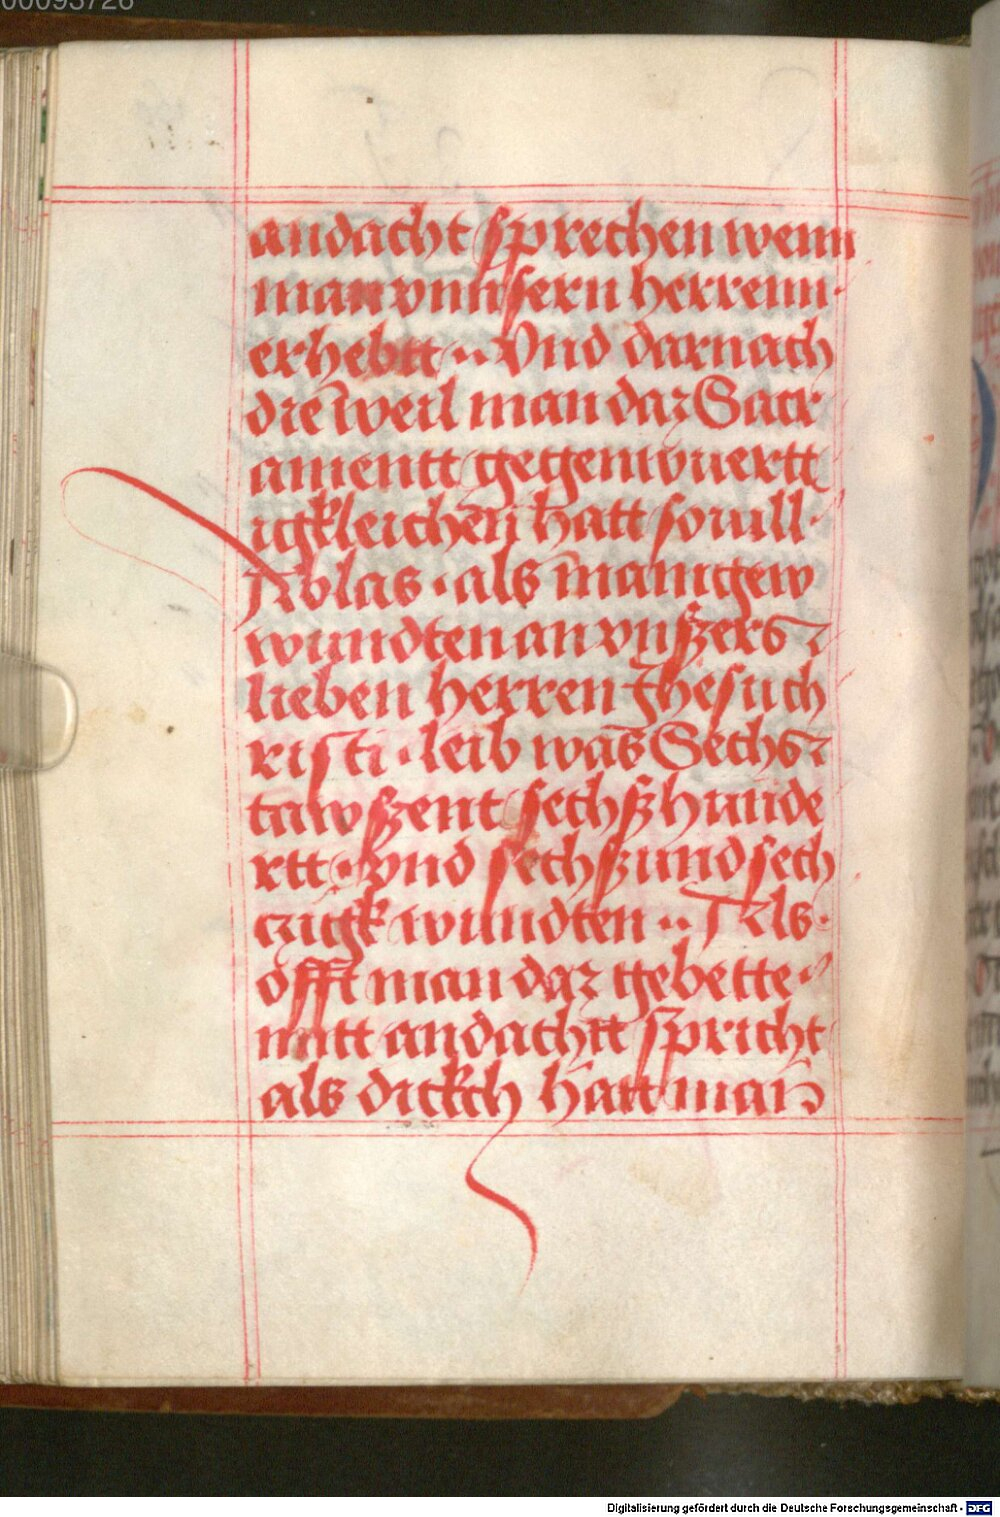 00093726
andacht sprechen wenn
man vnnsern herrenn·
erhebtt·· Vnd darnach
die weil man daz Sacr
amentt gegenwuertt
igkleichen hatt so uill·
Ablas · als manigew
wundten an vnszers
lieben herren Jhesu ch
risti · leib was Sechs
tawszent sechszhunde
rtt · vnd sechszund sech
czigk wundten ·· Als·
offt man daz gebette·
mitt andachtt spricht
als dickch hatt man
Digitalisierung gefördert durch die Deutsche Forschungsgemeinschaft - DFG